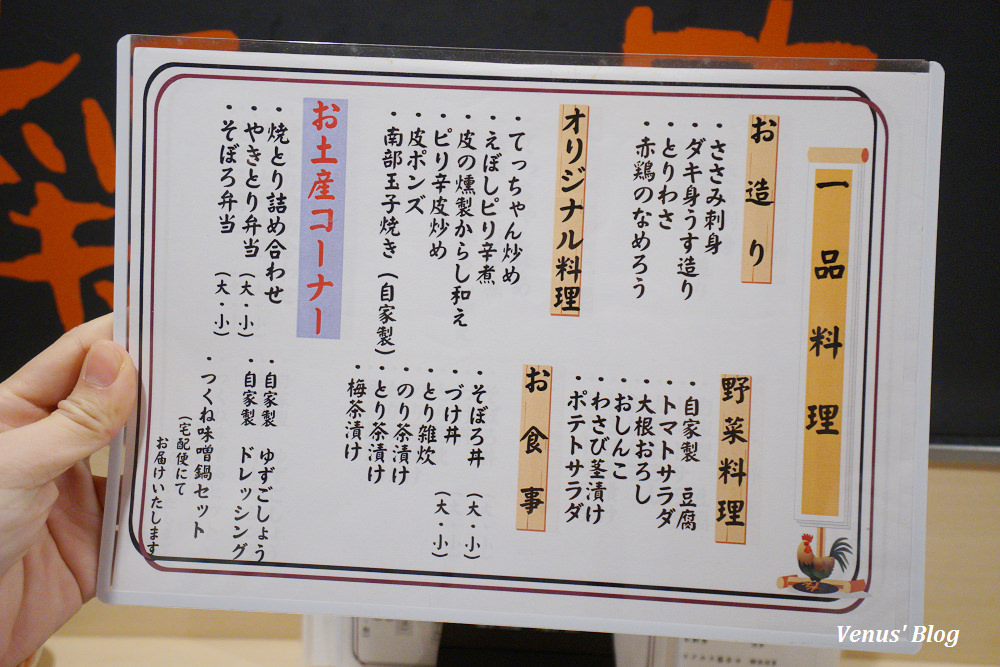 一品料理
お造り
・ささみ刺身
・ダキ身うす造り
・とりわさ
・赤鶏のなめろう
野菜料理
・自家製 豆腐
・トマトサラダ
・大根おろし
・おしんこ
・わさび茎漬け
・ポテトサラダ
オリジナル料理
・てっちゃん炒め
・えぼしピリ辛煮
・皮の燻製からし和え
・ピリ辛皮炒め
・皮ポンズ
・南部玉子焼き(自家製)
お食事
・そぼろ丼(大・小)
・づけ丼(大・小)
・とり雑炊
・のり茶漬け
・とり茶漬け
・梅茶漬け
お土産コーナー
・焼とり詰め合わせ
・やきとり弁当(大・小)
・そぼろ弁当(大・小)
・自家製 ゆずごしょう
・自家製 ドレッシング
・つくね味噌鍋セット
(宅配便にて
お届けいたします
Venus' Blog